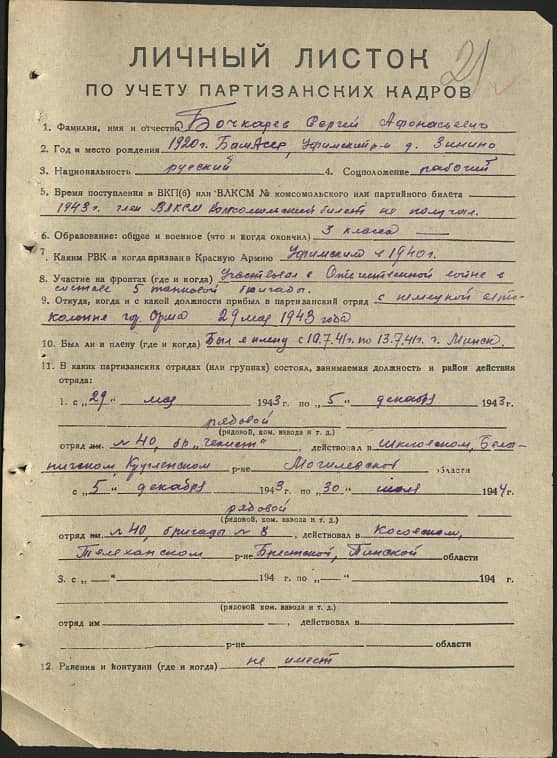 21
ЛИЧНЫЙ ЛИСТОК
ПО УЧЕТУ ПАРТИЗАНСКИХ КАДРОВ
1. Фамилия, имя и отчество Бочкарев Сергей Афонасьевич
2. Год и место рождения 1920 г. БашАССР, Уфимский р-н д. Зинино
3. Национальность русский 4. Соцположение рабочий
5. Время поступления в ВКП(б) или ВЛКСМ № комсомольского или партийного билета
1943 г. член ВЛКСМ комсомольский билет не получал.
6. Образование: общее и военное (что и когда окончил) 3 класса
7. Каким РВК и когда призван в Красную Армию Уфимским в 1940 г.
8. Участие на фронтах (где и когда) Участвовал в Отечественной войне в
составе 5 танковой бригады.
9. Откуда, когда и с какой должности прибыл в партизанский отряд с немецкой авто-
колонне гор. Орша 29 мая 1943 года
10. Был ли в плену (где и когда) Был в плену с 10.7.41 г. по 13.7.41 г. г. Минск.
11. В каких партизанских отрядах (или группах) состоял, занимаемая должность и район действия
отряда:
1. с „29" мая 1943 г. по „5" декабря 1943 г.
рядовой
(рядовой, ком. взвода и т. д.)
отряд им. № 40, бр „Чекист", действовал в Шкловском, Белы-
ничском, Круглянском р-не Могилевской области
с „5" декабря 1943 г. по „30" июля 1944 г.
рядовой
(рядовой, ком. взвода и т. д.)
отряд им. № 40, бригады № 8, действовал в Косовском,
Телеханском р-не Брестской, Пинской области
3. с „ " 194 г. по „ " 194 г.
(рядовой ком. взвода и т. д.)
отряд им , действовал в
р-не области
12. Ранения и контузии (где и когда) не имеет